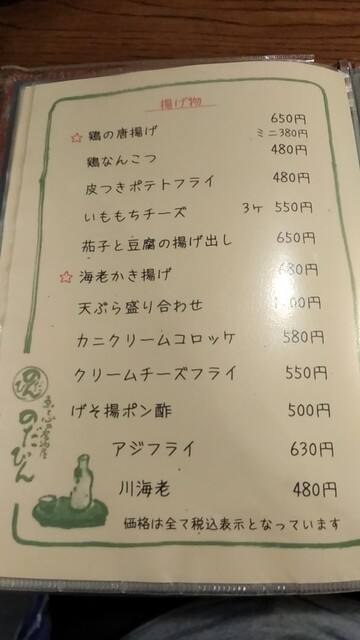 揚げ物
☆鶏の唐揚げ 650円
ミニ380円
鶏なんこつ 480円
皮つきポテトフライ 480円
いももちチーズ 3ヶ 550円
茄子と豆腐の揚げ出し 650円
☆海老かき揚げ 680円
天ぷら盛り合わせ
カニクリームコロッケ 580円
クリームチーズフライ 550円
げそ揚ポン酢 500円
アジフライ 630円
川海老 480円
価格は全て税込表示となっています
のだぴん